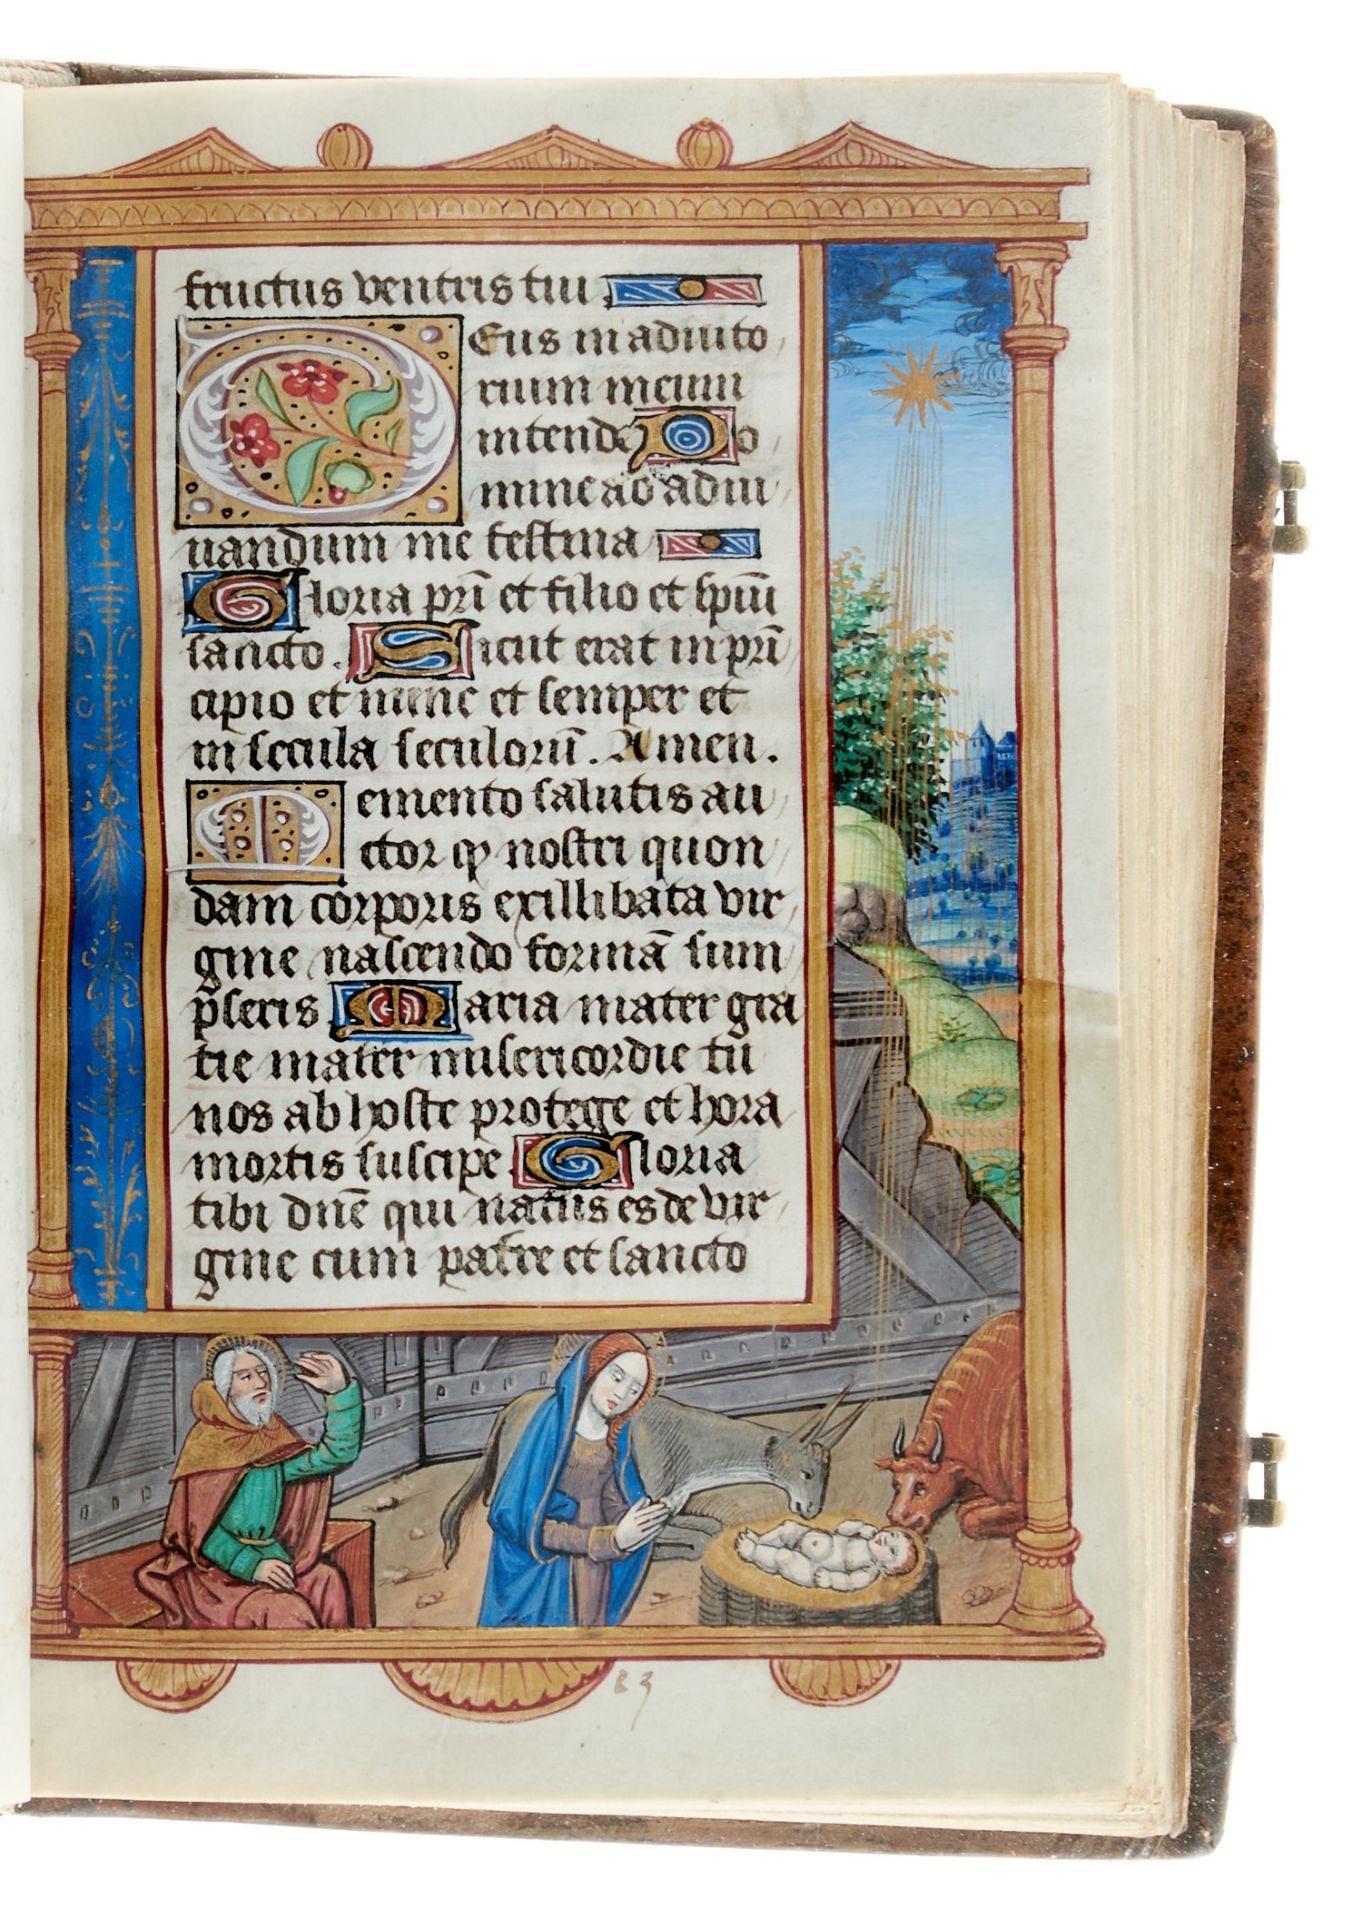 fructus ventris tui
Deus in adiuto
rium meum
intende Do
mine ad adiu
uandum me festina
Gloria pri̅ et filio et spiu̅i
sancto. Sicut erat in pri̅
cipio et nunc et semper et
in secula seculoru̅. Amen.
Memento salutis au
ctor qꝫ nostri quon
dam corporis exillibata vir
gine nascendo forma̅ sum
p̅seris Maria mater gra
tie mater misericordie tu̅
nos ab hoste protege et hora
mortis suscipe Gloria
tibi dn̅e qui natus es de vir
gine cum patre et sancto
83